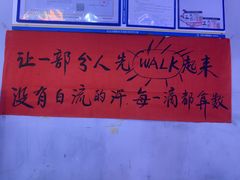 让一部分人先WALK起来
没有白流的汗 每一滴都算数